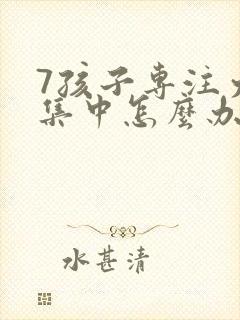 7孩子專注
集中怎麼办
水甚清